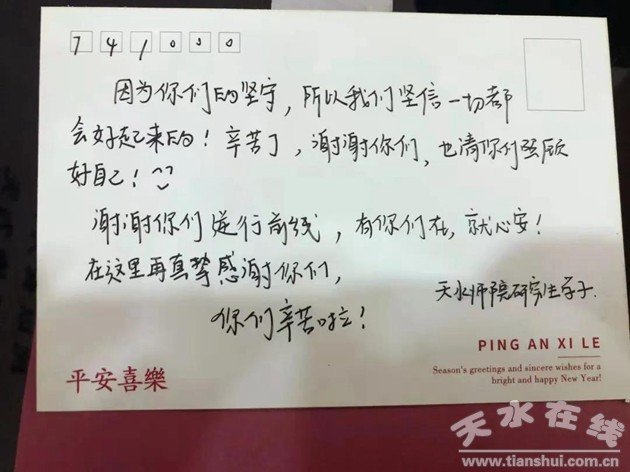 741030
因为你们的坚守，所以我们坚信一切都
会好起来的！辛苦了，谢谢你们，也请你们照顾
好自己！
谢谢你们逆行前线，有你们在，就心安！
在这里再真挚感谢你们，
你们辛苦啦！
天水师院研究生学子.
PING AN XI LE
平安喜樂
Season's greetings and sincere wishes for a
bright and happy New Year!
天水在线
www.tianshui.com.cn